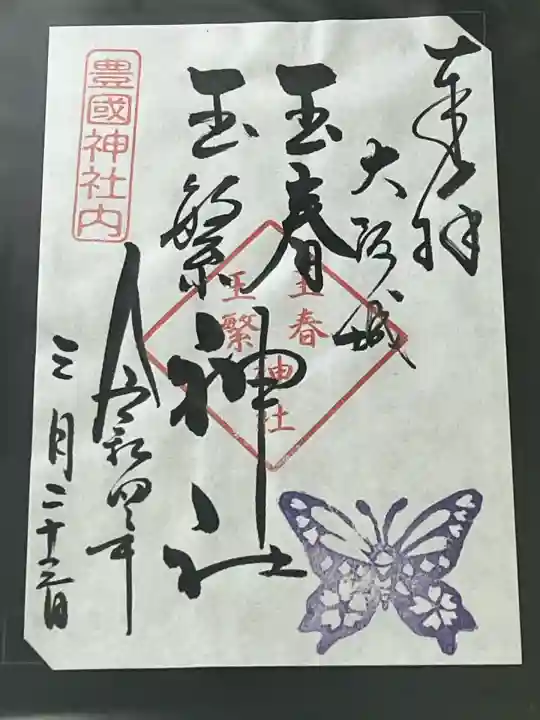 奉拝
大阪城
玉春
玉繁神社
玉春
玉繁
神社
豊國神社内
令和四年
三月二十三日